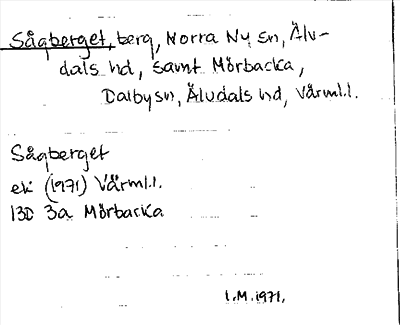 Sågberget, berg, Norra Ny sn, Älv-
dals hd, samt Mörbacka,
Dalby sn, Älvdals hd, Värml.l.
Sågberget
ek (1971) Värml.l.
13D 3a Mörbacka
l.M. 1971.